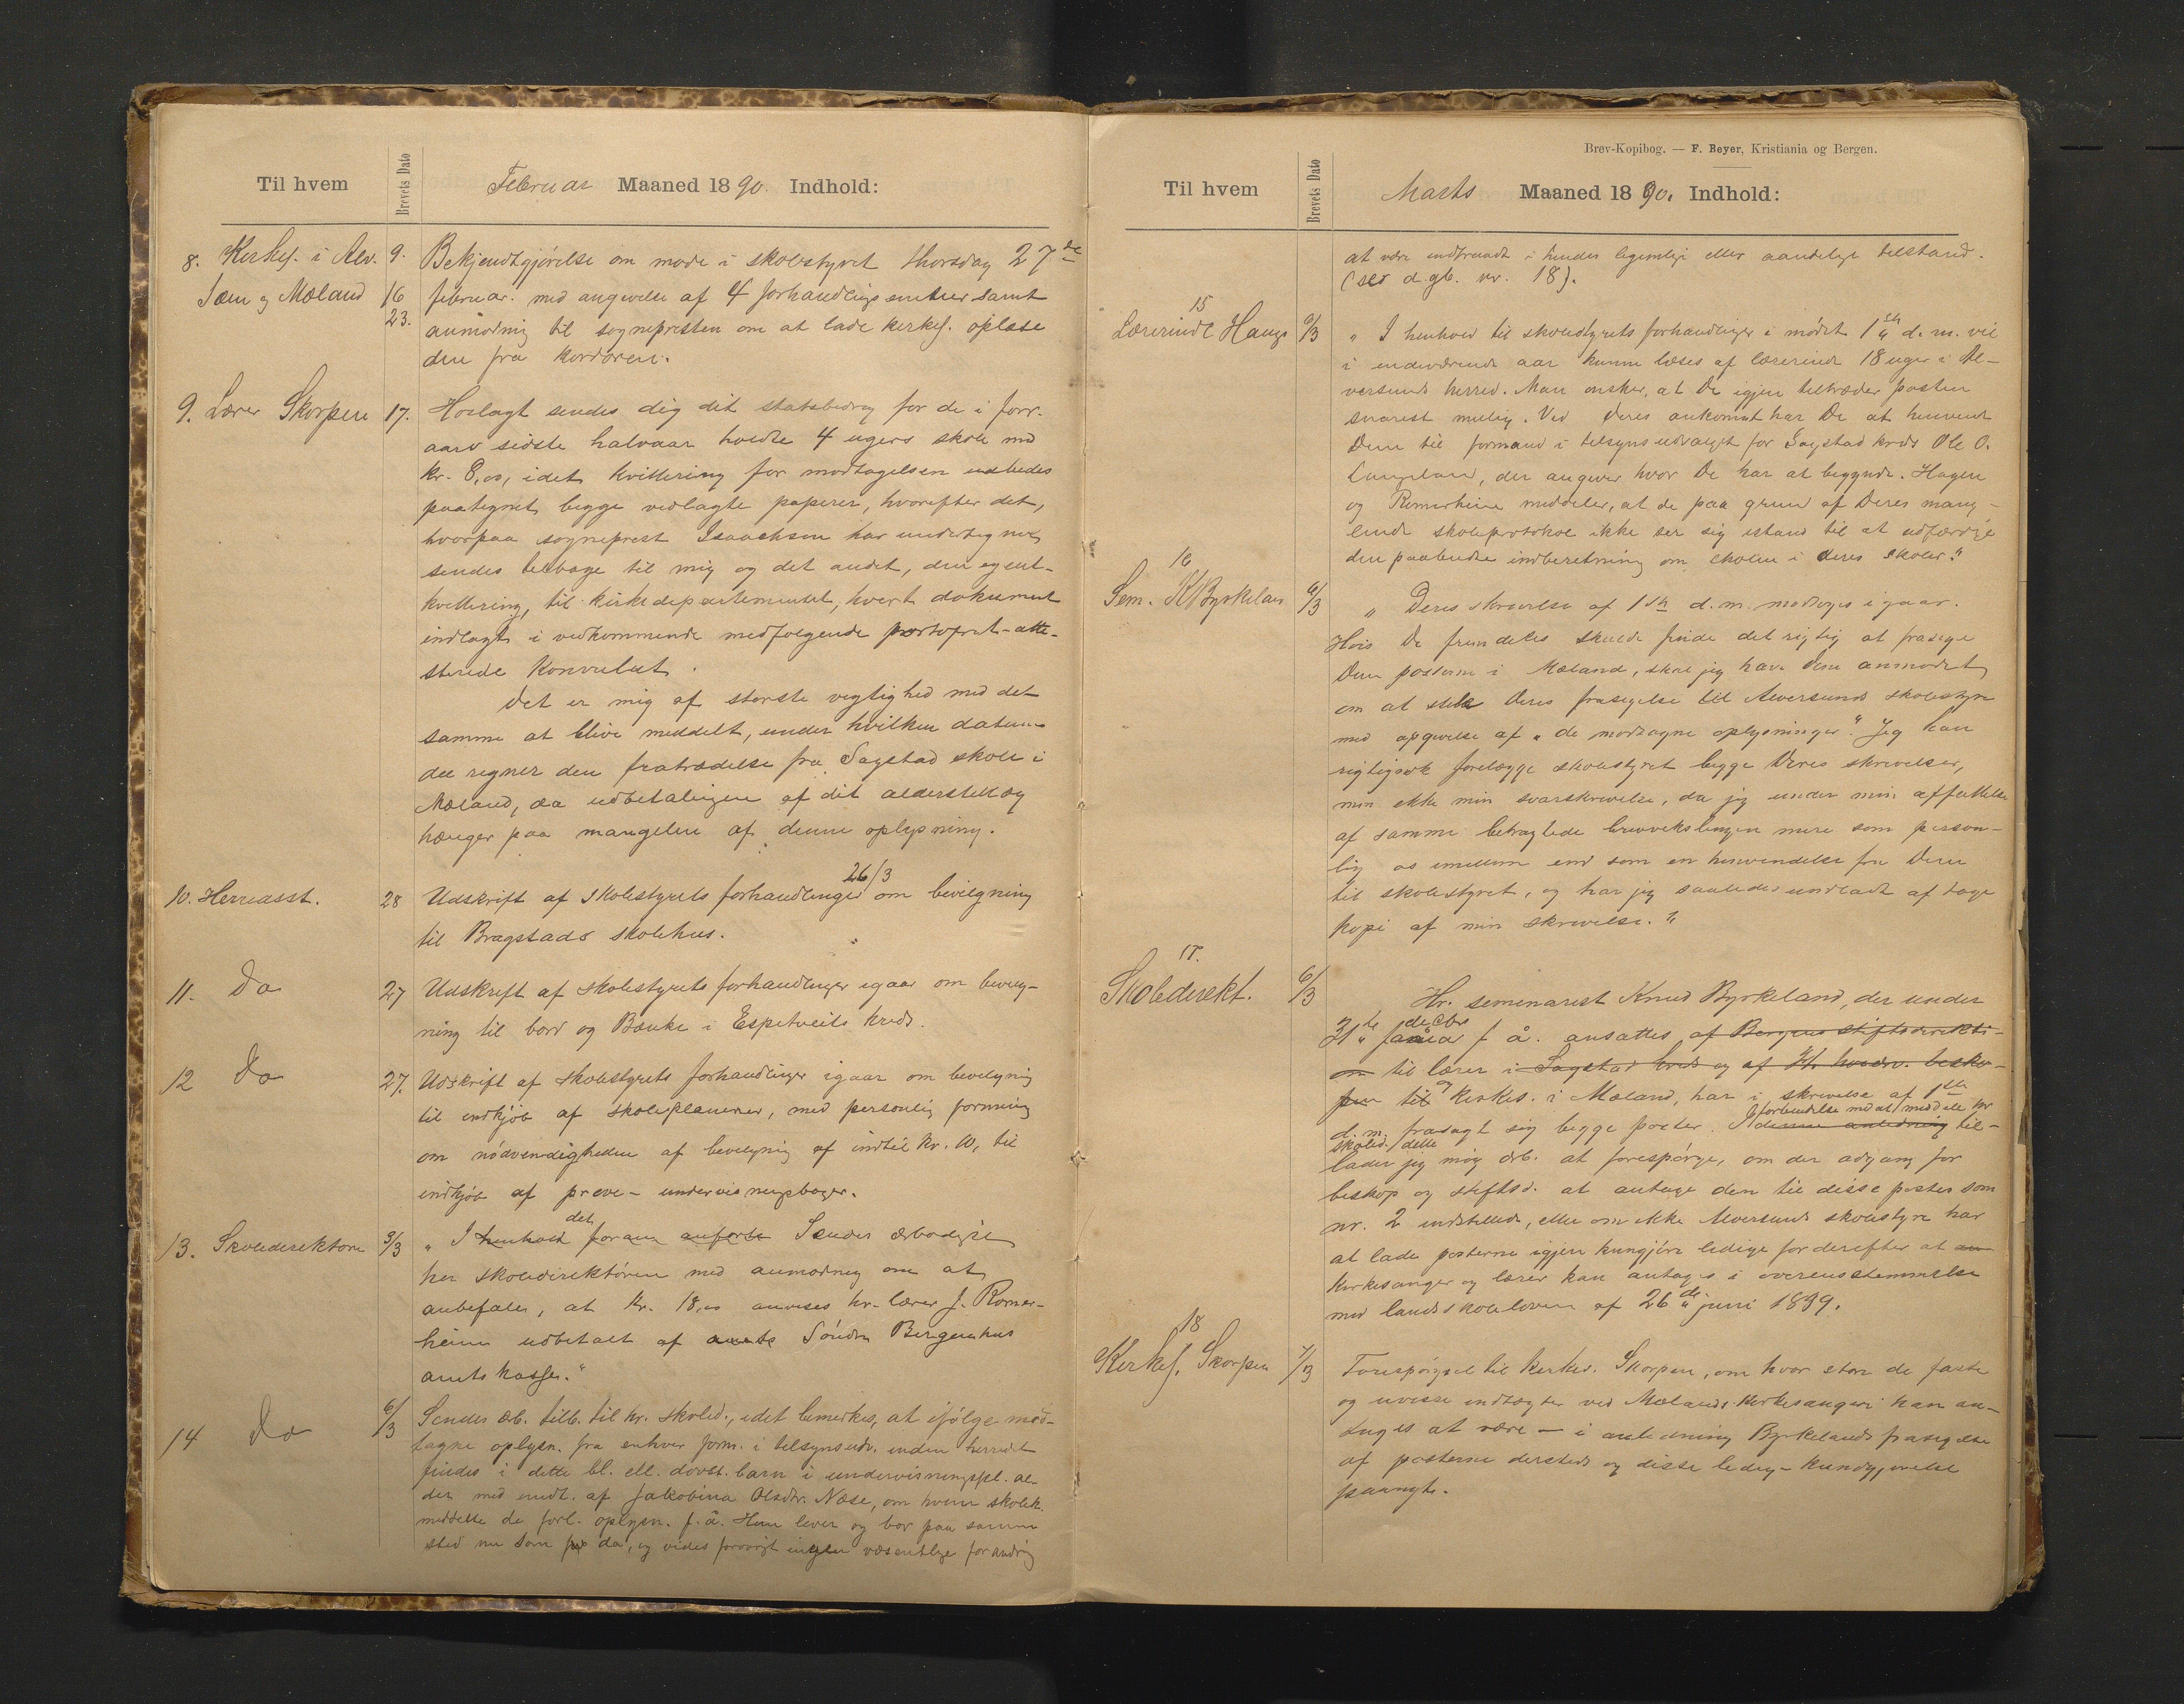 Til hvem
Brevets Dato
Februar Maaned 1890. Indhold:
8. Kirkes. i Alv. 9.
Sæm og Mæland 16
23.
Bekjendtgjørelse om møde i skolestyret thorsdag 27de
februar. med angivelse af 4 forhandlings emner samt
anmodnig til sognepresten om at lade kirkes. oplæse
den fra kordøren.
9. Lærer Skorpen 17.
Hoslagt sendes dig dit statsbidrag for de i forr.
aars sidste halvaar holdte 4 ugers skole med
kr. 8,00, idet kvittering for modtagelsen udbedes
paategnet begge vedlagte papirer, hvorefter det,
hvorpaa sogneprest Isaachsen har undertegnet,
sendes tilbage til mig og det andet, den egent-
kvittering, til kirkedepartementet, hvert dokument
indlagt i vedkommende medfølgende portofrit-atte-
sterede konvolut.
Det er mig af største vigtighed med det
samme at blive meddelt, under hvilken datum
du regner din fratrædelse fra Sagstad skole i
Mæland, da udbetalingen af dit alderstillæg
hænger paa mangelen af denne oplysning.
10. Herredsst. 28
Udskrift af Skolestyrets forhandlinger 26/3 om bevilgning
til Bragstads skolehus.
11. Do 27
Udskrift af skolestyrets forhandlinger igaar om bevilg-
ning til bord og Bænke i Espetveits kreds.
12 Do 27.
Udskrift af skolestyrets forhandlinger igaar om bevilgnig
til indkjøb af skoleplanerner, med personlig formening
om nødvendigheden af bevilgnig af indtil kr. 10, til
indkjøb af prøve- undervisningsbøger.
13. Skoledirektøren 3/3
„ I henhold det foran anførte Sendes ærbødigst
hr skoledirektøren med anmodnig om at
anbefales, at kr. 18,00 anvises hr. lærer J. Romar-
heim udbetalt af amts Søndre Bergenhus
amtskasse."
14 Do 6/3
Sendes ærb. tilb. til hr. skoled., idet bemerkes, at ifølge mod-
tagne oplysn. fra enhver form. i tilsynsudv. inden herredet
findes i dette bl. ell. døvst. barn i undervisningspl. al-
der med undt. af Jakobina Olsdtr. Næse, om hvem skolek.
meddelte de forl. oplysn. f. å. Hun lever og bor paa samme
sted nu som da, og vides forøvrigt ingen væsentlige forandrig
Brev-Kopibog. — F. Beyer, Kristiania og Bergen.
Til hvem
Brevets Dato
Marts Maaned 1890. Indhold:
at være indtraadt i hendes legemlige eller aandelige tilstand.
(ser d.gb. nr. 18).
15
Lærerinde Haugs 6/3
„ I henhold til skolestyrets forhandlinger i mødet 1ste d. m. vil
i indeværende aar kunne læses af lærerinde 18 uger i Al-
versunds herred. Man ønsker, at De igjen tiltræder posten
snarest mulig. Ved Deres ankomst har De at henvende
Dem til formand i tilsynsudvalget for Sagstad kreds Ole O.
Langeland, der angiver, hvor De har at begynde. Hagen
og Romarheim meddeler, at de paa grund af Deres mang-
lende skoleprotokol ikke ser sig istand til at udfærdige
den paabudte indberetning om skolen i deres skoler."
16
Sem. K Byrkeland 6/3
„ Deres skrivelse af 1ste d. m. modtoges igaar.
Hvis De fremdeles skulde finde det rigtig at frasige
Dem posterne i Mæland, skal jeg have Dem anmodet
om at stile Deres frasigelse til Alversunds skolestyre
med opgivelse af „ de modtagne oplysninger". Jeg kan
rigtignok forelægge skolestyret begge Deres skrivelser,
men ikke min svarskrivelse, da jeg under min affattelse
af samme betragtede brevvekslingen mere som person-
lig os imellem end som en henvendelse fra Dem
til skolestyret, og har jeg saaledes undladt at tage
kopi af min skrivelse."
17.
Skoledirekt. 6/3
Hr. seminarist Knud Byrkeland, der under
31te januar decbr f å. ansattes af Bergens stiftsdirekti-
on til lærer i Sagstad kreds og af Hr. biskop-
pen til og kirkes. i Mæland, har i skrivelse af 1ste
d. m. frasagt sig begge poster. I denne anledning forbindelse med at meddele hr
skoled. dette til-
lader jeg mig ærb. at forespørge, om der adgang for
beskop og stiftsd. at antage den til disse poster som
nr. 2 indstillede, eller om ikke Alversunds skolestyre har
at lade posterne igjen kungjøre ledige for derefter at an
kirkesanger og lærer kan antages i overensstemmelse
med landsskoleloven af 26de juni 1889.
18
Kirkes. Skorpen 7/3
Forespørgsel til kirkes. Skorpen, om hvor store de faste
og uvisse indtægter ved Mælands kirkesangeri kan an-
tages at være — i anledning Byrkelands frasigelse
af posterne dersteds og disse ledig-kundgjørelse
paanyt.